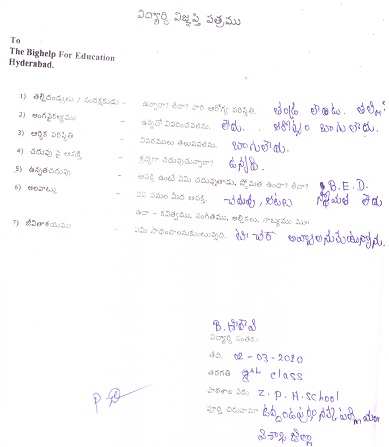 విద్యార్థి విజ్ఞప్తి పత్రము
To
The Bighelp For Education
Hyderabad.
1) తల్లిదండ్రులు / సంరక్షకుడు - ఉన్నారా? లేరా? వారి ఆరోగ్య పరిస్థితి. తండ్రి లేడు. తల్లికి
2) అంగవైకల్యము - ఉన్నచో వివరించవలెను. లేదు. ఆరోగ్యం బాగులేదు.
3) ఆర్థిక పరిస్థితి - వివరములు తెలుపవలెను. బాగులేదు.
4) చదువు పై ఆసక్తి - కష్టంగా చదువుచున్నారా? ఉన్నది.
5) ఉన్నతచదువు - ఆసక్తి ఉంటే ఏమి చదువుతాడు, స్తోమత ఉందా? లేదా? B.E.D.
6) అలవాట్లు - ఏయే పనుల మీద ఆసక్తి. చదువు, ఆటలు స్తోమత లేదు
ఉదా - కవిత్వము, సంగీతము, అల్లికలు, నాట్యము
7) జీవితాశయము - ఏమి సాధించాలనుకుంటున్నది. టీచర్ అవ్వాలనుకుంటున్నాను.
B.
విద్యార్థి సంతకం.
తేది. 02-03-2020
తరగతి class
పాఠశాల పేరు Z.P.H.School
పూర్తి చిరునామా
విశాఖ జిల్లా